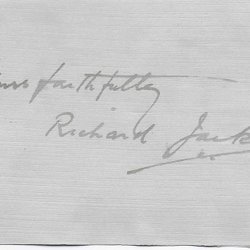 urs faithfully
Richard Jack